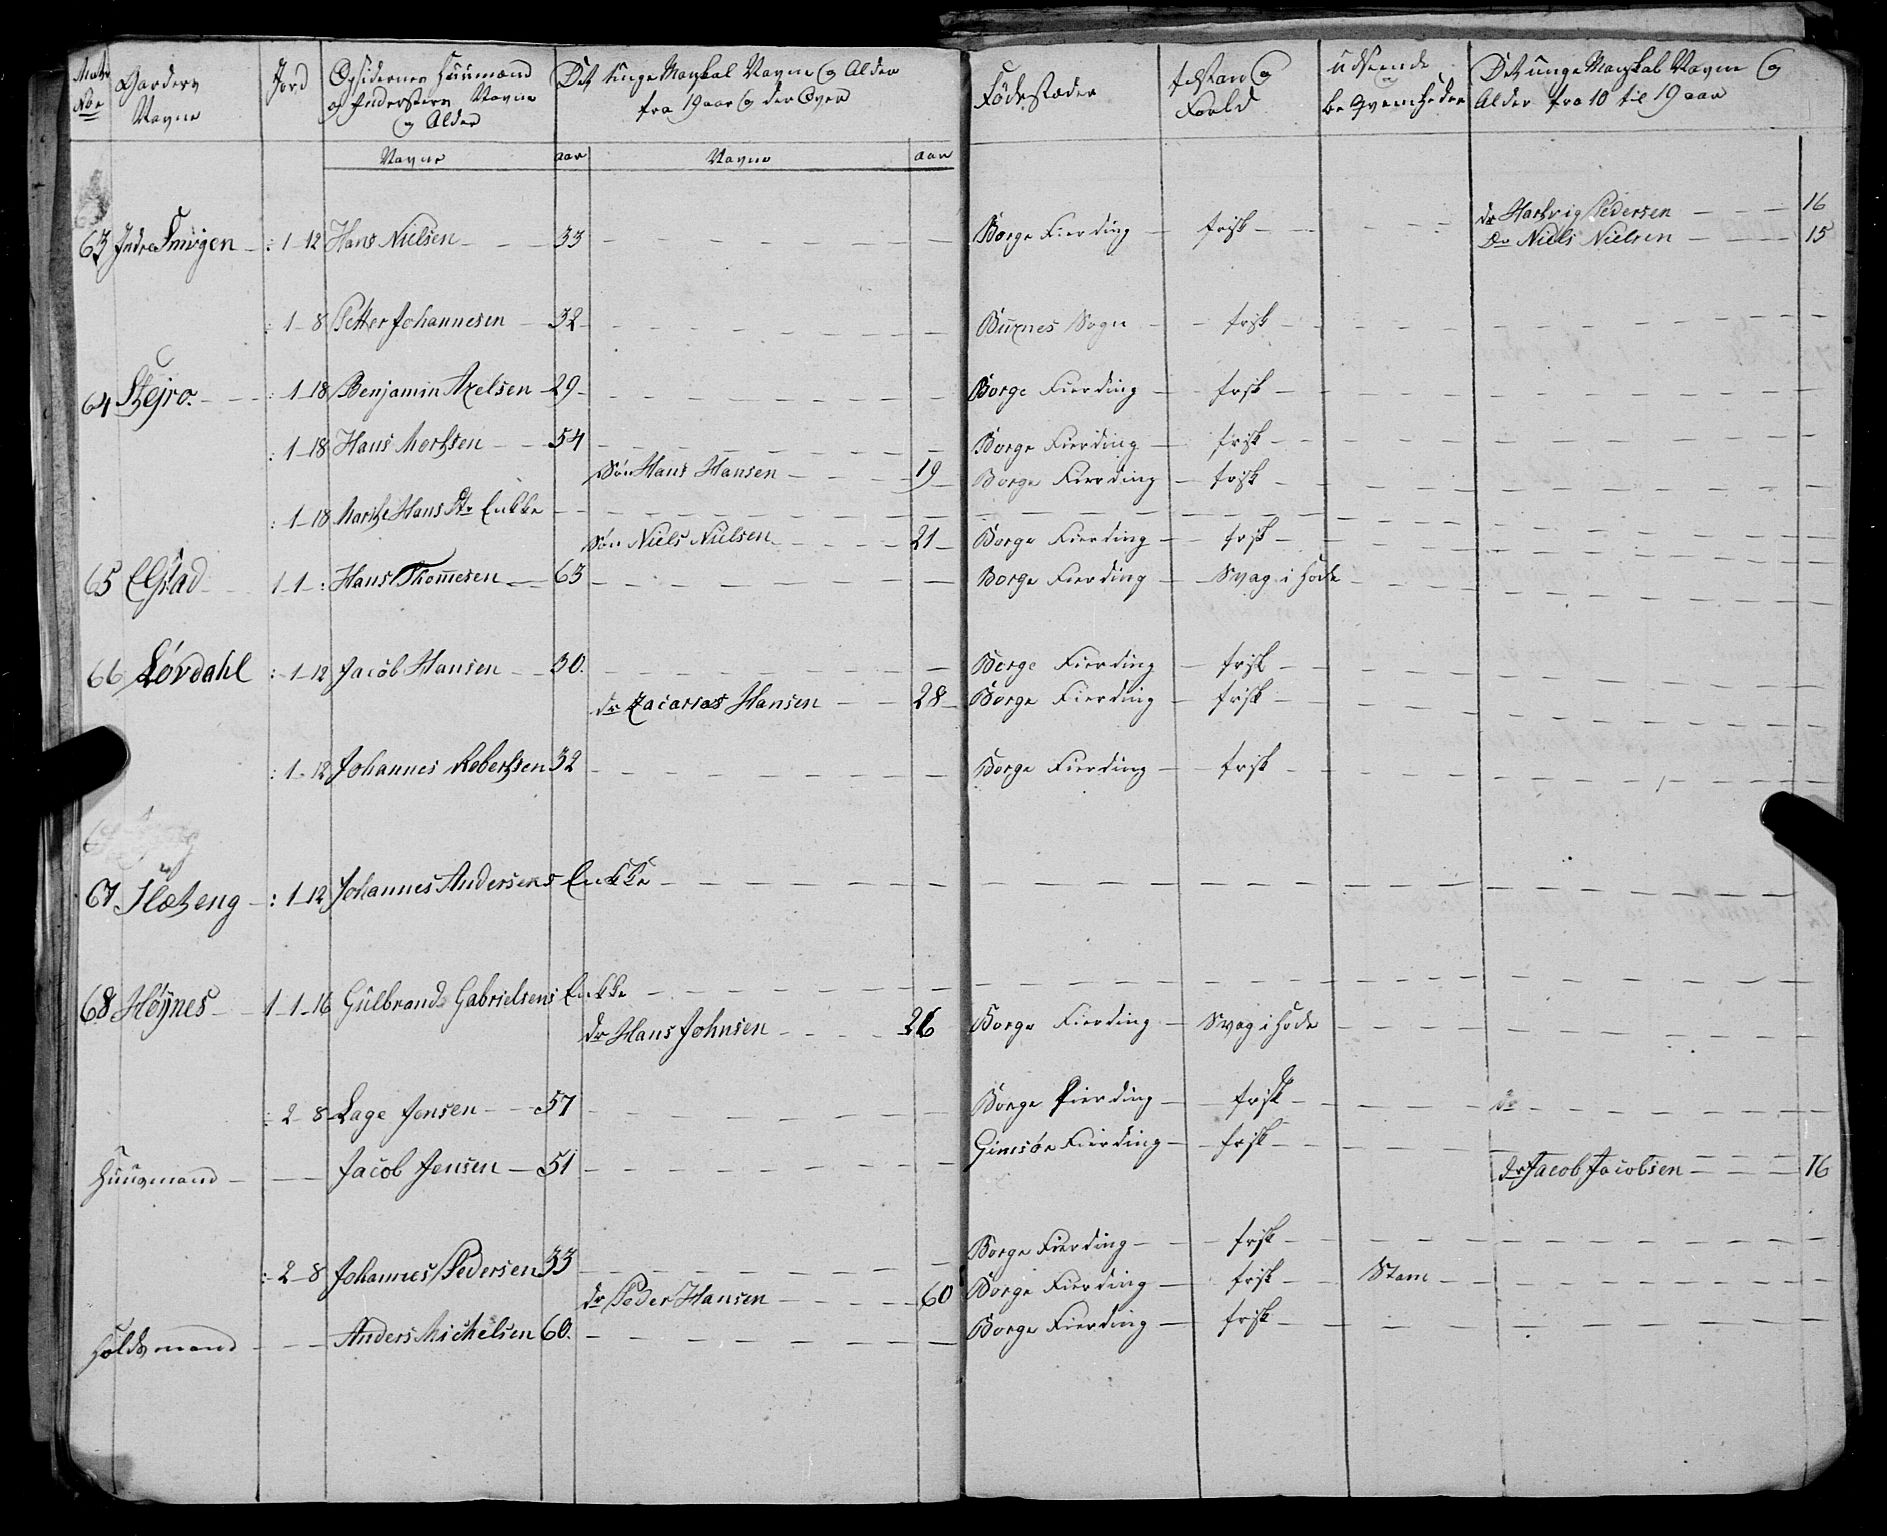 Matr No
Gardens Navne
Jord
Opsidernes Huusmænd og Inderstens Navne og Alder
Det Unge Manskal Navne og Alder fra 19 aar og der Over
Fødestæder
Tilstan og Forld
Udseende og beqvemheder
Det unge Manskal Navne og Alder fra 10 til 19 aar
Navne aar Navne aar
dr Hartvig Pedersen 16
63 Indre Smogen : 1-12 Hans Nielsen 33 Borge Fierding frisk Dr Niels Nielsen 15
: 1-8 Petter Johannesen 32 Buxnes Sogn frisk
64 Stejro. : 1-18 Benjamin Axelsen 29 Borge Fierding frisk
: 1-18 Hans Mortsen 54 Borge Fierding frisk
Søn Hans Hansen 19 Borge Fierding frisk
: 1-18 Marthe Hans Dr Enkke
Søn Niels Nielsen 21 Borge Fierding frisk
65 Elstad 1-1-: Hans Thomesen 63 Borge Fierding Svag i Hode
66 Lørdahl : 1-12 Jacob Hansen 30. Borge Fierding frisk
dr Zacarias Hansen 28 Borge Fierding frisk
: 1-12 Johannes Robertsen 32 Borge Fierding frisk
67 Slæteng : 1-12 Johannes Andersens Enkke
68 Høynes 1-1-16 Gulbrands Gabrielsens Enkke
dr Hans Johnsen 26 Borge Fierding Svag i Hode
: 2-8 Lage Jensen 57 Borge Fierding frisk
Huusmand Jacob Jensen 51 Gimsøe Fierding frisk
dr Jacob Jacobsen 16
: 2-8 Johannes Pedersen 33 Borge Fierding frisk
dr Peder Hansen 60 Borge Fierding frisk Stam
Holdsmand Anders Michelsen 60. Borge Fierding frisk